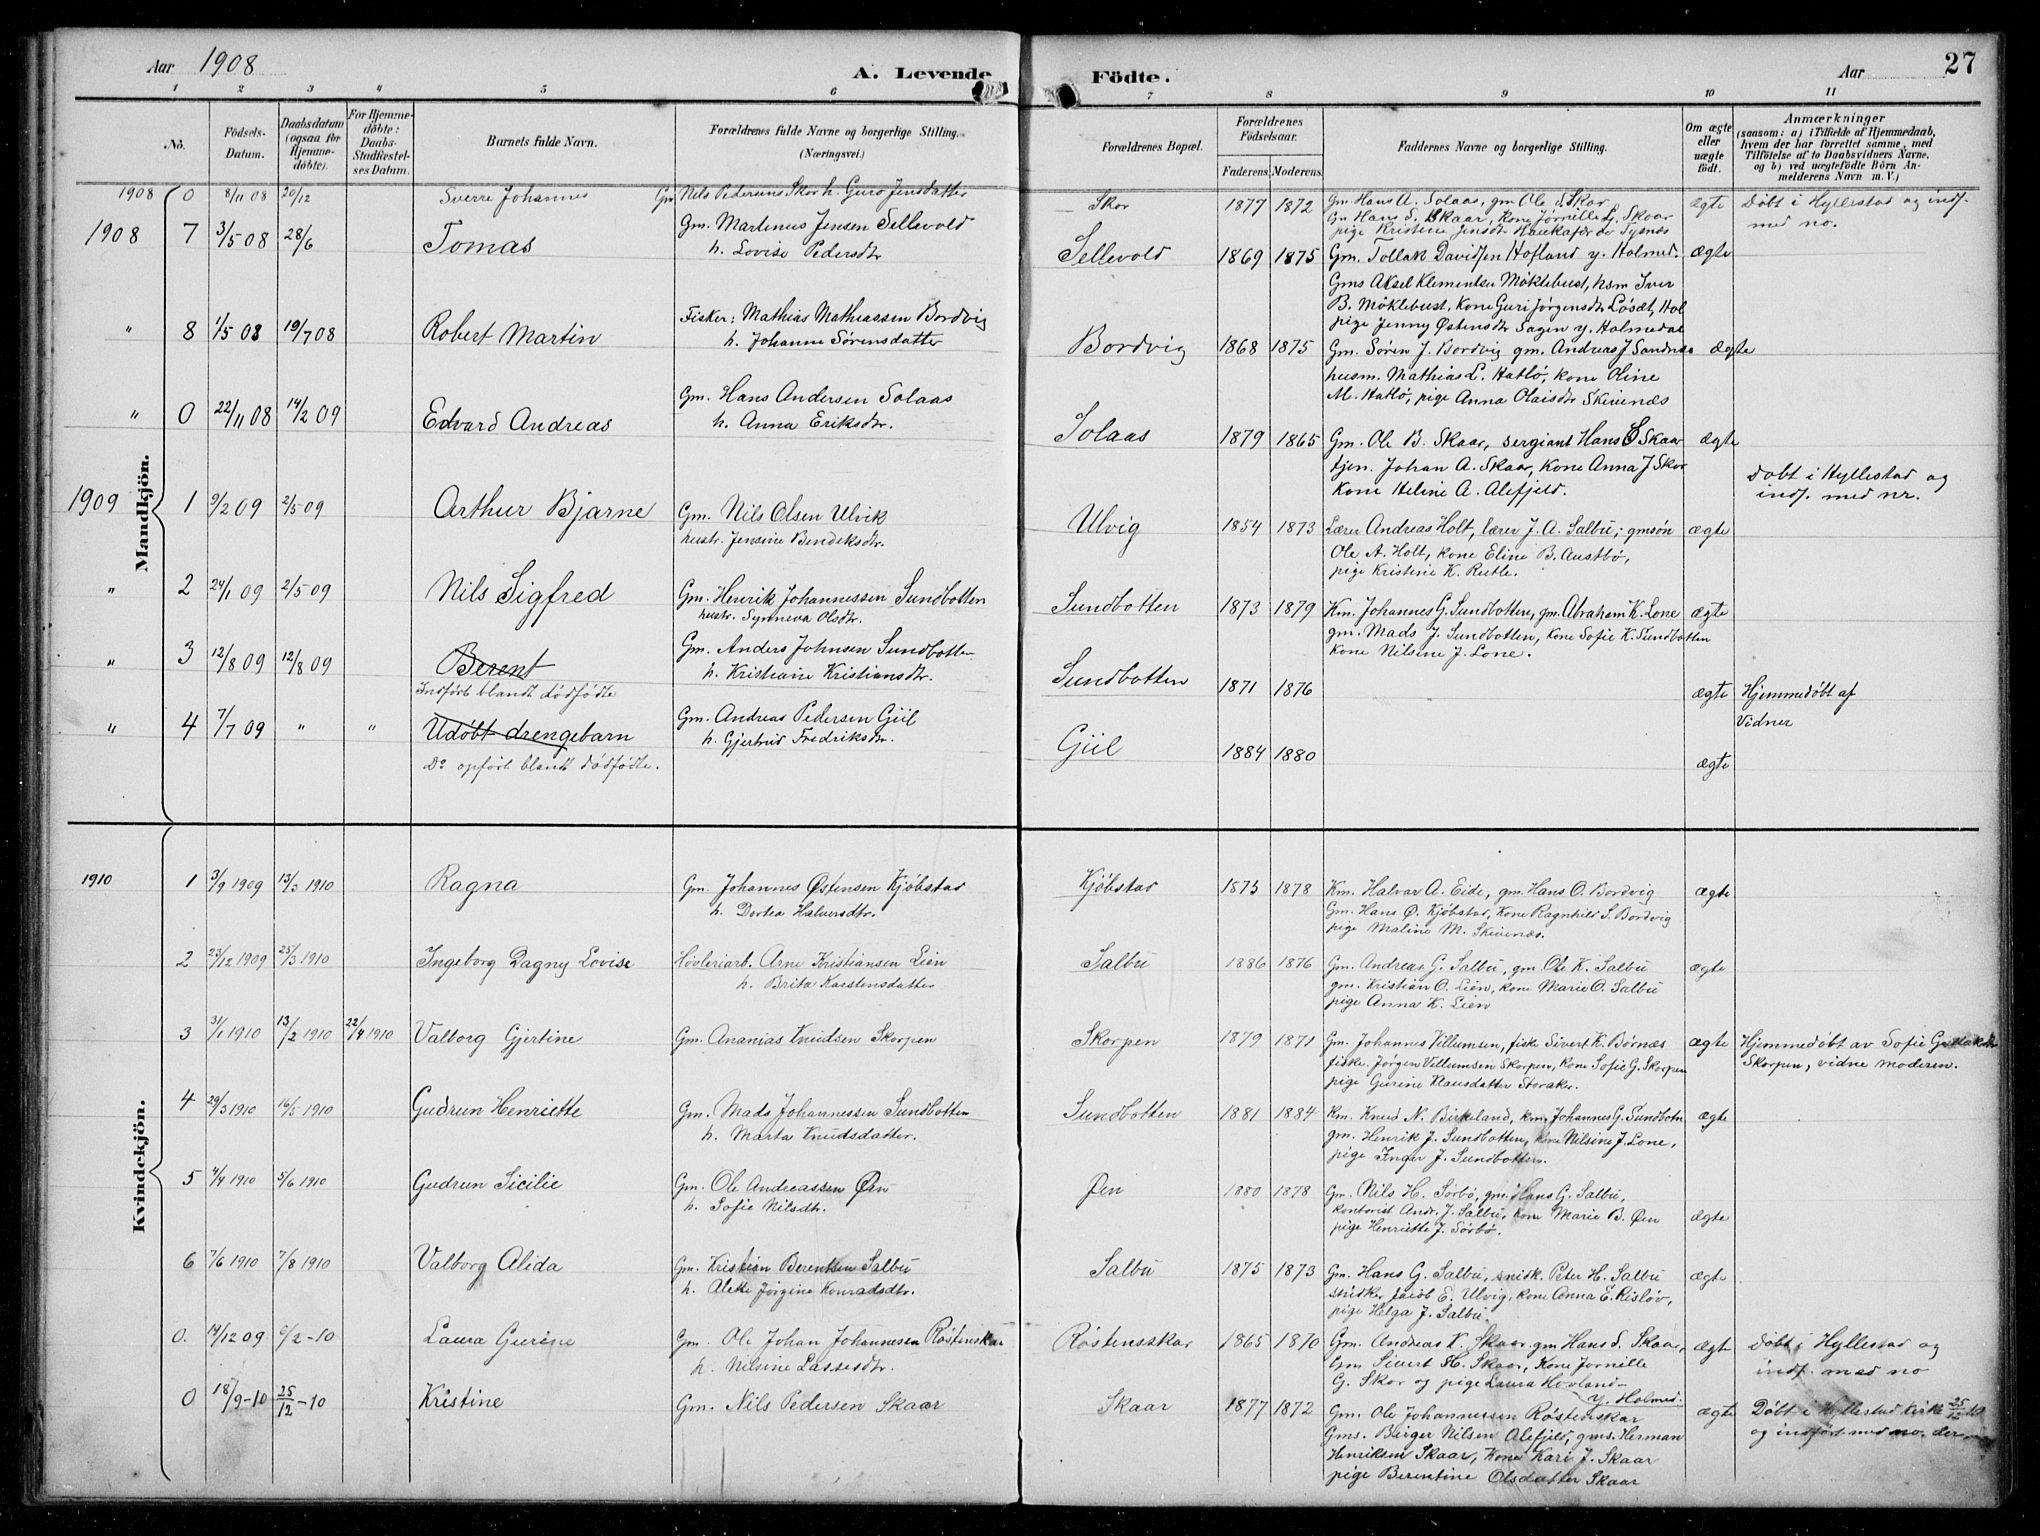 Aar 1908
A. Levende Födte.
Aar
27
1 2 3 4 5 6 7 8 9 10 11
No.
Födsels-Datum.
Daabsdatum (ogsaa for Hjemme-döbte).
For Hjemme-döbte: Daabs-Stadfestel-ses Datum.
Barnets fulde Navn.
Forældrenes fulde Navne og borgerlige Stilling. (Næringsvei.)
Forældrenes Bopæl.
Forældrenes Födselsaar.
Faderens. Moderens.
Faddernes Navne og borgerlige Stilling.
Om ægte eller uægte födt.
Anmærkninger
(saasom: a) i Tilfælde af Hjemmedaab, hvem der har forrettet samme, med Tilföielse af to Daabsvidners Navne. og b) ved uægtefödte Börn An-melderens Navn m. V.)
Mandkjön.
1908 0 8/11 08 20/12 Sverre Johannes Gm Nils Pedersen Skor h. Guro Jensdatter Skor 1877 1872 Gm Hans A. Solaas, gm Ole S Skor ægte Døbt i Hyllestad og indf.
Gm Hans S. Skaar, kone Jørnille G. Skaar med no.
pige Kristine Jensdt
1908 7 3/5 08 28/6 Tomas Gm. Martinus Jensen Sellevold
h. Lovise Pedersdtr Sellevold 1869 1875 Gm. Tollak Davidsen Hofland y. Holmed. ægte
Gms Aksel Klementsen Møklebust, hsm Iver
B. Møklebust, Kone Guri Jørgensdtr Løsæt, Hol
pige Jenny Østensdtr Sagen y. Holmedal
" 8 1/5 08 19/7 08 Robert Martin Fisker: Mathias Mathiassen Bordvig
h. Johanne Sørensdatter Bordvig 1868 1875 Gm. Søren J. Bordvig gm. Andreas J Sandnes ægte
husm. Mathias L. Hatlø, kone Oline
M. Hatlø, pige Anna Olaisdtr Skivenæs
" 0 22/11 08 14/2 09 Edvard Andreas Gm. Hans Andersen Solaas
h. Anna Eriksdtr. Solaas 1879 1865 Gm. Ole B. Skaar, sergiant Hans S Skaar ægte
tjen. Johan A. Skaar, Kone Anna J Skor Døbt i Hyllestad og
Kone Heline A. Alefjeld. indf. med nr.
1909 1 9/2 09 2/5 09 Arthur Bjarne Gm. Nils Olsen Ulvik
hustr. Jensine Bendiksdtr. Ulvig 1854 1873 Lærer Andreas Holt, lærer J. A. Salbu; gmsøn ægte
Ole A. Holt, kone Eline B. Austbø,
pige Kristine K. Rutle.
" 2 24/1 09 2/5 09 Nils Sigfred Gm. Henrik Johannessen Sundbotten
hustr. Synneva Olsdtr. Sundbotten 1873 1879 Km. Johannes G. Sundbotten, gm. Abraham K. Lone ægte
gm. Mads J. Sundbotten, kone Sofie K. Sundbotten
kone Nilsine J. Lone.
" 3 12/8 09 12/8 09 Berent Gm. Anders Johnsen Sundbotten
Indført blandt dødfødte h. Kristiane Kristiansdtr. Sundbotten 1871 1876 ægte Hjemmedøbt af
Vidner
" 4 7/7 09 " " Udøbt drengebarn Gm. Andreas Pedersen Giil
h. Gjertrud Fredriksdtr. Giil 1884 1880 ægte
Do opført blandt dødfødte.
Kvindekjön.
1910 1 3/9 1909 13/3 1910 Ragna Gm. Johannes Østensen Kjøbstad
h. Dortea Halversdtr. Kjøbstad 1873 1878 Km. Halvar A. Eide, gm. Hans O. Bordvig ægte
Gm. Hans Ø. Kjøbstad, Kone Ragnhild S. Bordvig
pige Maline M. Skivenæs.
2 23/12 1909 25/3 1910 Ingeborg Dagny Lovise Høvleriarb. Arne Kristiansen Lien
h. Brita Karstensdatter Salbu 1886 1876 Gm. Andreas G. Salbu, gm. Ole K. Salbu ægte
gm. Kristian O. Lien, kone Marie O. Salbu
pige Anna K. Lien
3 31/1 1910 13/2 1910 22/4 1910 Valborg Gjertine Gm. Ananias Knudsen Skorpen Skorpen 1879 1871 Gm. Johannes Villumsen, fisk. Sivert K. Børnæs ægte Hjemmedøbt av Sofie
fiske. Jørgen Villumsen Skorpen, kone Sofie G. Skorpen Skorpen, vidne moderen.
pige Gurine Klausdatter Storake.
4 29/3 1910 16/5 1910 Gudrun Henriette Gm. Mads Johannessen Sundbotten
h. Marta Knudsdatter. Sundbotten 1881 1884 Km. Knud N. Birkeland, km. Johannes G. Sundbotn ægte
gm. Henrik J. Sundbotten, kone Nilsine J. Lone,
pige Inger J. Sundbotten.
5 4/4 1910 5/6 1910 Gudrun Sicilie Gm. Ole Andreassen Øen
h. Sofie Nilsdtr. Øen 1880 1878 Gm. Nils H. Sørbø, gm. Hans G. Salbu,
kontorist Andr. J. Salbu, kone Marie B. Øen ægte
pige Henriette J. Sørbø.
6 7/6 1910 7/8 1910 Valborg Alida Gm. Kristian Berentsen Salbu
h. Alette Jørgine Konradsdtr. Salbu 1875 1873 Gm. Hans G. Salbu, snidk. Peter H. Salbu ægte
snidker Jacob E. Ulvig, kone Anna E. Risløv,
pige Helga J. Salbu.
0. 19/12 09 6/2-10 Laura Gurine Gm. Ole Johan Johannesen Røstenskar
h. Nilsine Lassesdtr. Røstensskar 1865 1870 Gm. Andreas K. Skaar, gm Hans S. Skaar, ægte Døbt i Hyllestad og
Gm Sivert H. Skaar, Kone Jornille indf. med no
G. Skor og pige Laura Hovland
y. Holmed.
0 18/9-10 25/12-10 Kristine Gm. Nils Pedersen Skaar Skaar 1877 1872 Gm. Ole Johannessen Røstenskar ægte Døbt i Hyllestad kirke 25/12 10
Gms. Birger Nilsen Alefjeld, gms. Herman og indført med no. der
Henriksen Skaar, Kone Kari J. Skaar
pige Berentine Olsdatter Skaar